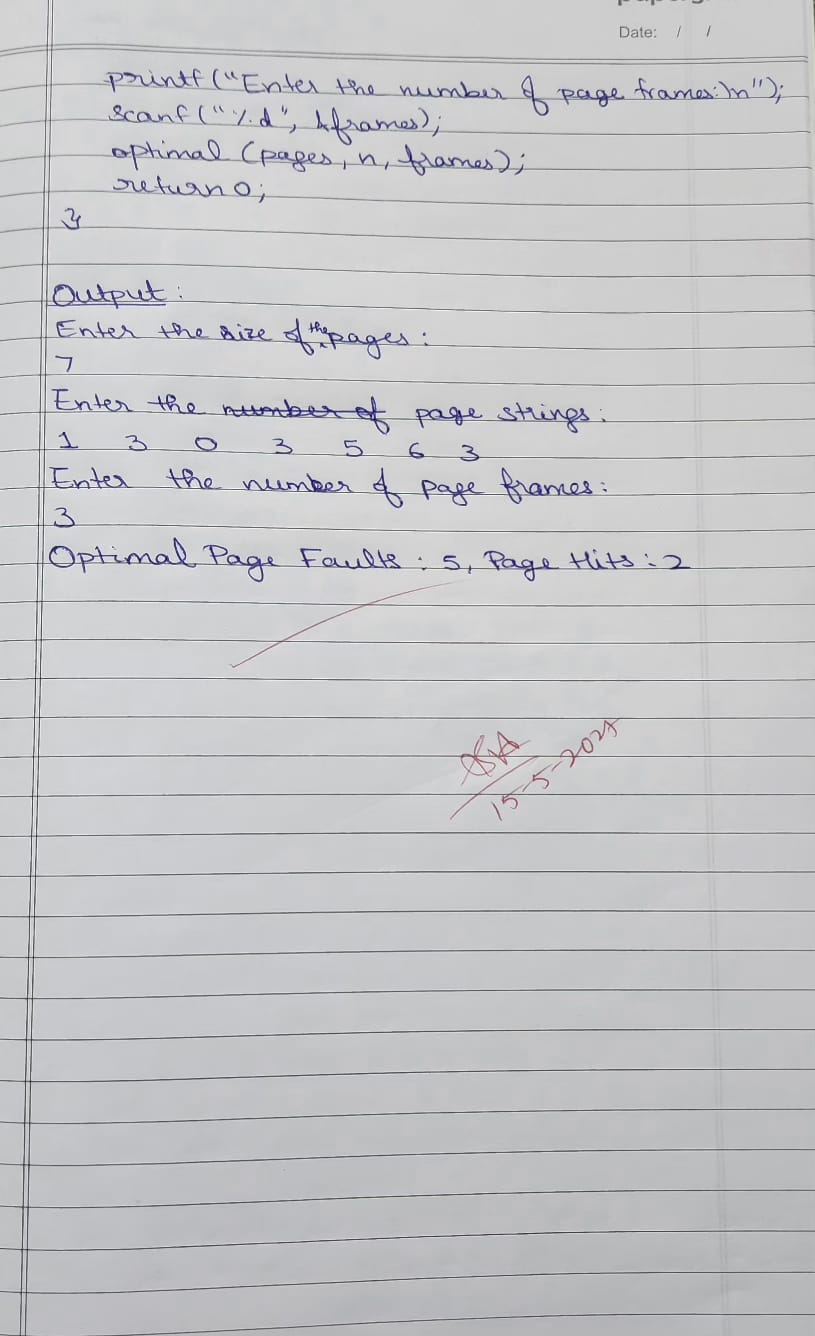 Date: / /
printf("Enter the number of page frames:\n");
scanf("%d", &frames);
optimal (pages, n, frames);
return 0;
}
Output:
Enter the size of the pages:
7
Enter the number of page strings:
1 3 0 3 5 6 3
Enter the number of page frames:
3
Optimal Page Faults: 5, Page Hits: 2
15-5-2025